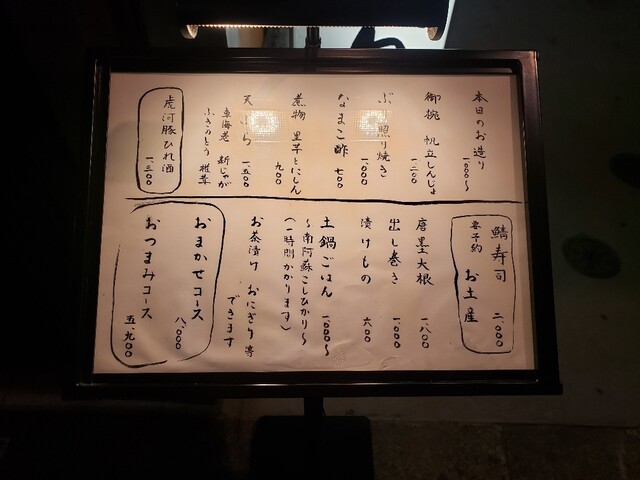 本日のお造り 一、〇〇〇〜
御椀 帆立しんじょ 一、二〇〇
ぶり照り焼き 一、〇〇〇
なまこ酢 七〇〇
煮物 里芋とにしん 九〇〇
天ぷら 一、五〇〇
車海老 新じゃが
ふきのとう 椎茸
虎河豚ひれ酒 一、三〇〇
鯖寿司 二、〇〇〇
要予約 お土産
唐墨大根 一、八〇〇
出し巻き 一、〇〇〇
漬けもの 六〇〇
土鍋ごはん 一、〇〇〇〜
〜南阿蘇こしひかり〜
(一時間かかります)
お茶漬け おにぎり等
できます
おまかせコース 八、〇〇〇
おつまみコース 五、九〇〇